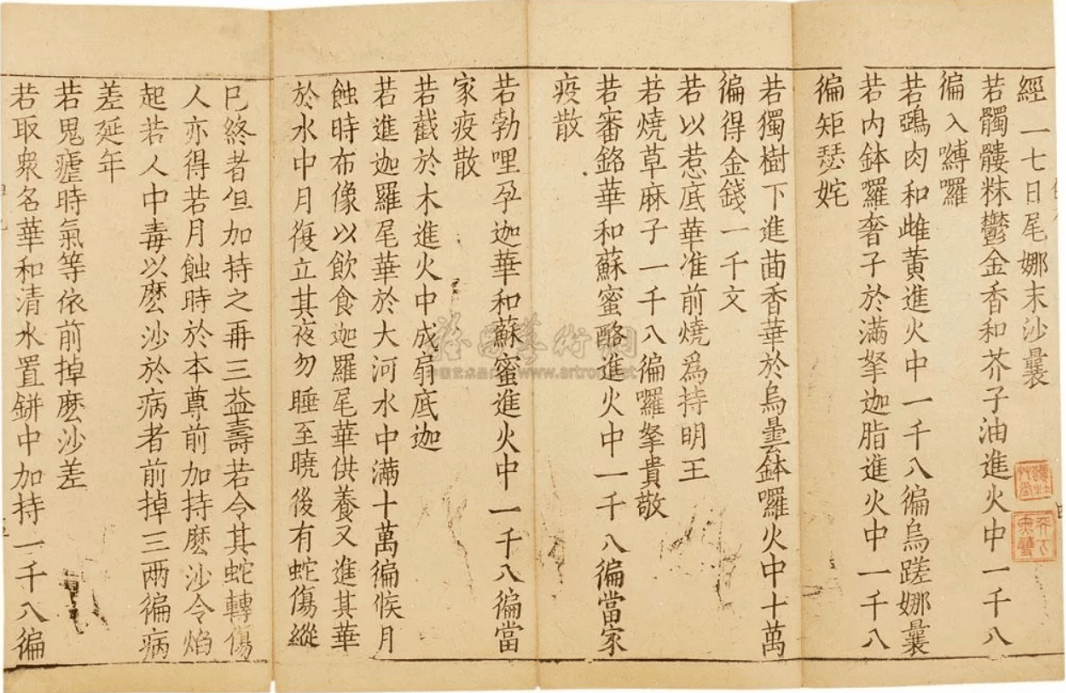 經一七日尾娜末沙曩
若髑髏粖鬱金香和芥子油進火中一千八
徧入嚩囉
若鵄肉和雌黃進火中一千八徧烏蹉娜曩
若內鉢囉奢子於滿拏迦脂進火中一千八
徧矩瑟姹
若獨樹下進茴香華於烏曇鉢囉火中十萬
徧得金錢一千文
若以惹底華准前燒爲持明王
若燒草麻子一千八徧囉拏貴敬
若審鉻華和蘇蜜酪進火中一千八徧當家
疫散
若勃哩孕迦華和蘇蜜進火中一千八徧當
家疫散
若截於木進火中成扇底迦
若進迦羅尾華於大河水中滿十萬徧候月
蝕時布像以飲食迦羅尾華供養又進其華
於水中月復立其夜勿睡至曉後有蛇傷縱
已終者但加持之再三益壽若令其蛇轉傷
人亦得若月蝕時於本尊前加持麽沙令焰
起若人中毒以麽沙於病者前掉三兩徧病
差延年
若鬼瘧時氣等依前掉麽沙差
若取衆名華和清水置鉼中加持一千八徧
www.artron.net